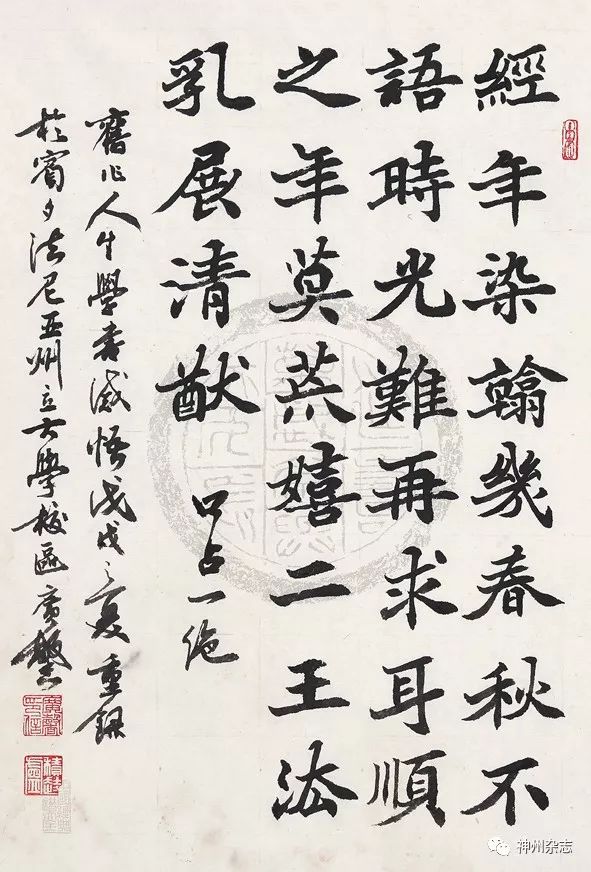 經年染翰幾春秋不
語時光難再求耳順
之年莫荒嬉二王法
乳展清猷 口占一绝
舊作人生學書感悟戊戌之夏重録
於賓夕法尼亚州立大學校區
神州杂志